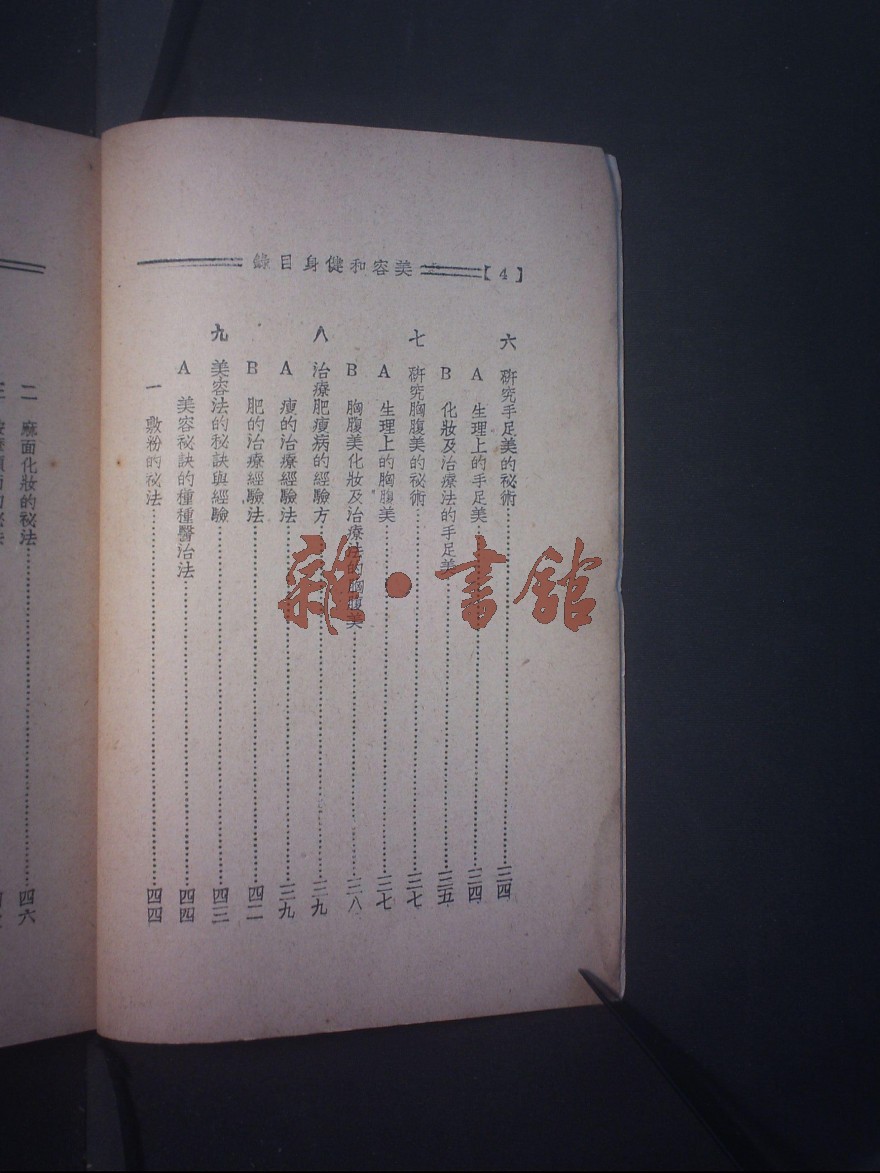 【4】美容和健身目錄
六 硏究手足美的祕術三四
A 生理上的手足美三四
B 化妝及治療法的手足美三五
七 硏究胸腹美的祕術三七
A 生理上的胸腹美三七
B 胸腹美化妝及治療法的胸腹美三八
八 治療肥瘦病的經驗方三九
A 瘦的治療經驗法三九
B 肥的治療經驗法四二
九 美容法的秘訣與經驗四三
A 美容祕訣的種種醫治法四四
一 敷粉的祕法四四
二 麻面化妝的祕法四六
雜·書館